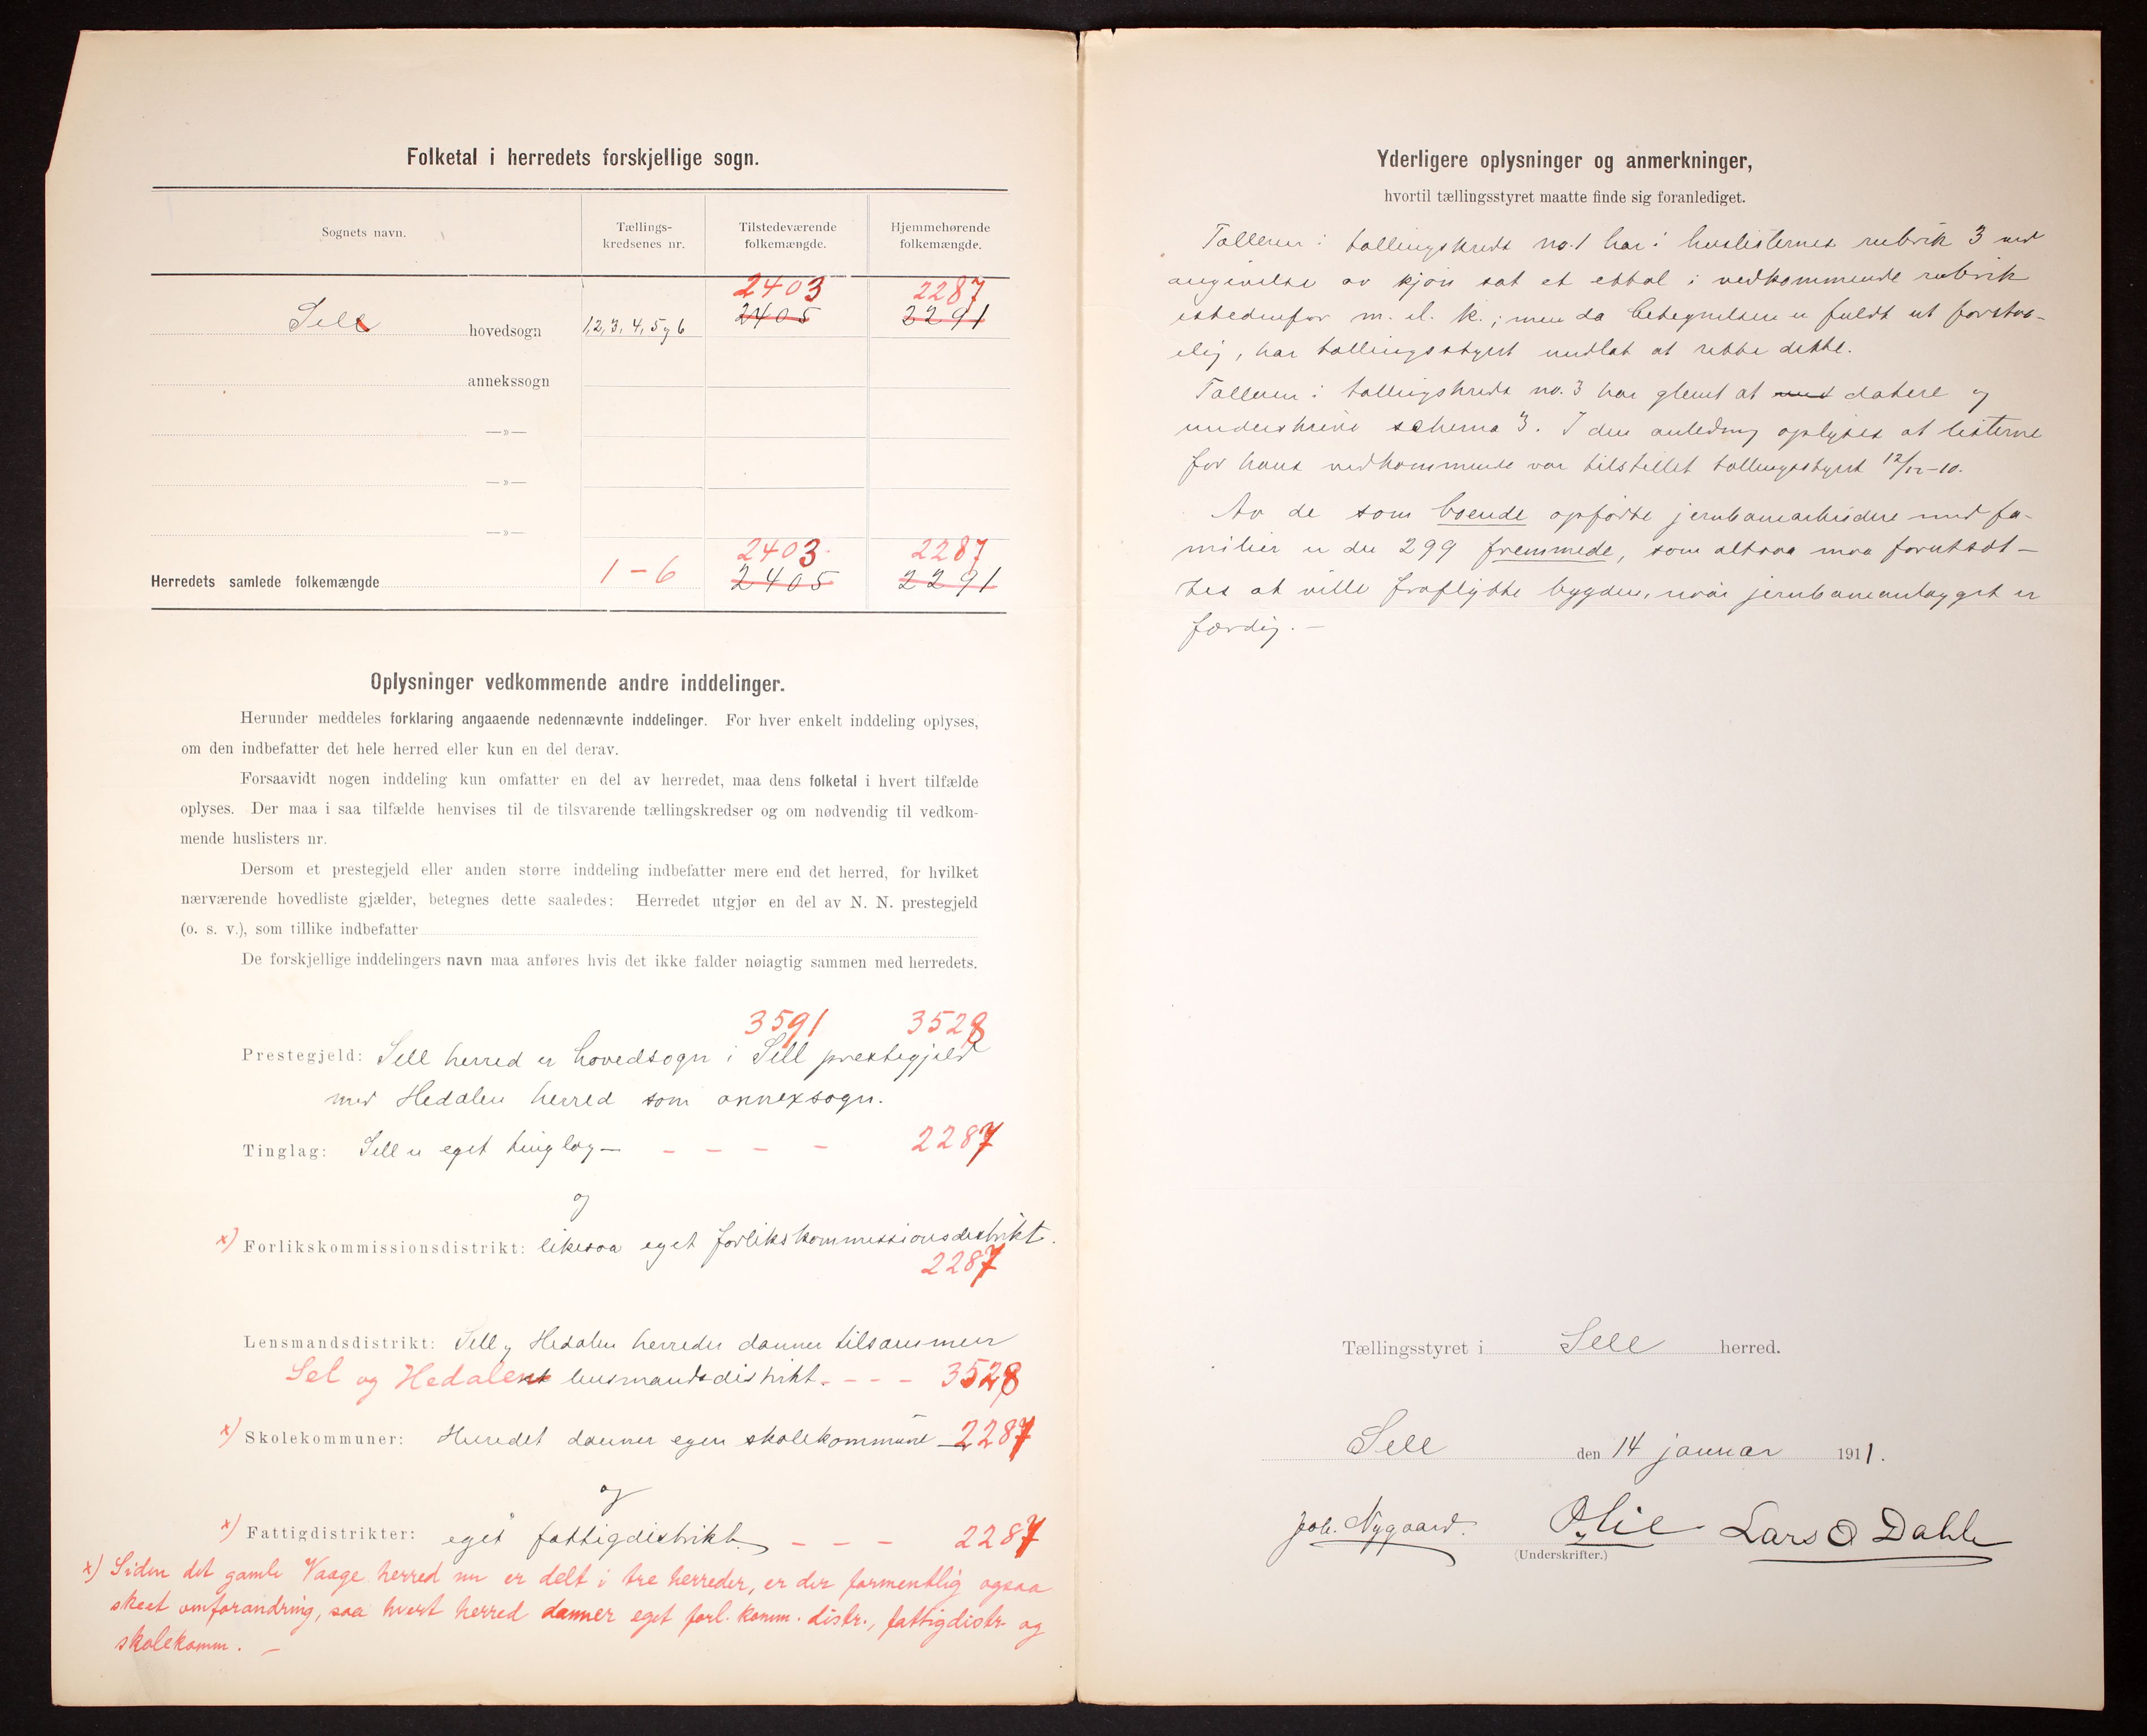 Folketal i herredets forskjellige sogn.
Sognets navn.
Tællings-
kredsenes nr.
Tilstedeværende
folkemængde.
Hjemmehørende
folkemængde.
2403 2287
Sell hovedsogn 1, 2, 3, 4, 5 og 6 2405 2291
annekssogn
—»—
—»—
—»—
2403 2287
Herredets samlede folkemængde 1-6 2405 2291
Oplysninger vedkommende andre inddelinger.
Herunder meddeles forklaring angaaende nedennævnte inddelinger. For hver enkelt inddeling oplyses,
om den indbefatter det hele herred eller kun en del derav.
Forsaavidt nogen inddeling kun omfatter en del av herredet, maa dens folketal i hvert tilfælde
oplyses. Der maa i saa tilfælde henvises til de tilsvarende tællingskredser og om nødvendig til vedkom-
mende huslisters nr.
Dersom et prestegjeld eller anden større inddeling indbefatter mere end det herred, for hvilket
nærværende hovedliste gjælder, betegnes dette saaledes: Herredet utgjør en del av N. N. prestegjeld
(o. s. v.), som tillike indbefatter
De forskjellige inddelingers navn maa anføres hvis det ikke falder nøiagtig sammen med herredets.
3591 3528
Prestegjeld: Sell herred er hovedsogn i Sell prestegjeld
med Hedalen herred som annexsogn.
Tinglag: Sell er eget tinglag — - - - - 2287
og
x) Forlikskommissionsdistrikt: likesaa eget forlikskommissionsdistrikt.
2287
Lensmandsdistrikt: Sell og Hedalen herreder danner tilsammen
Sel og Hedalens lensmandsdistrikt. - - - 3528
x) Skolekommuner: Herredet danner egen skolekommune 2287
og
x) Fattigdistrikter: eget fattigdistrikt - - - 2287
x) Siden det gamle Vaage herred nu er delt i tre herreder, er der formentlig ogsaa
skeet omforandring, saa hvert herred danner eget forl. komm. distr., fattigdistr. og
skolekomm. —
Yderligere oplysninger og anmerkninger,
hvortil tællingsstyret maatte finde sig foranlediget.
Tælleren i tællingskreds no. 1 har i huslisternes rubrik 3 ved
angivelse av kjøn sat et ettal i vedkommende rubrik
istedenfor m. el. k.; men da betegnelsen er fuldt ut forstaa-
elig, har tællingsstyret undlat at rette dette.
Tælleren i tællingskreds no. 3 har glemt at med datere og
underskrive schema 3. I den anledning oplyses at listerne
for hans vedkommende var tilstillet tællingsstyret 12/12-10.
Av de som boende opførte jernbanearbeidere med fa-
milier er der 299 fremmede, som altsaa maa forutsæt-
tes at ville fraflytte bygden, naar jernbaneanlægget er
færdig. —
Tællingsstyret i Sell herred.
Sell den 14 januar 1911.
Joh. Nygaard. O Lie Lars O Dahle
(Underskrifter.)